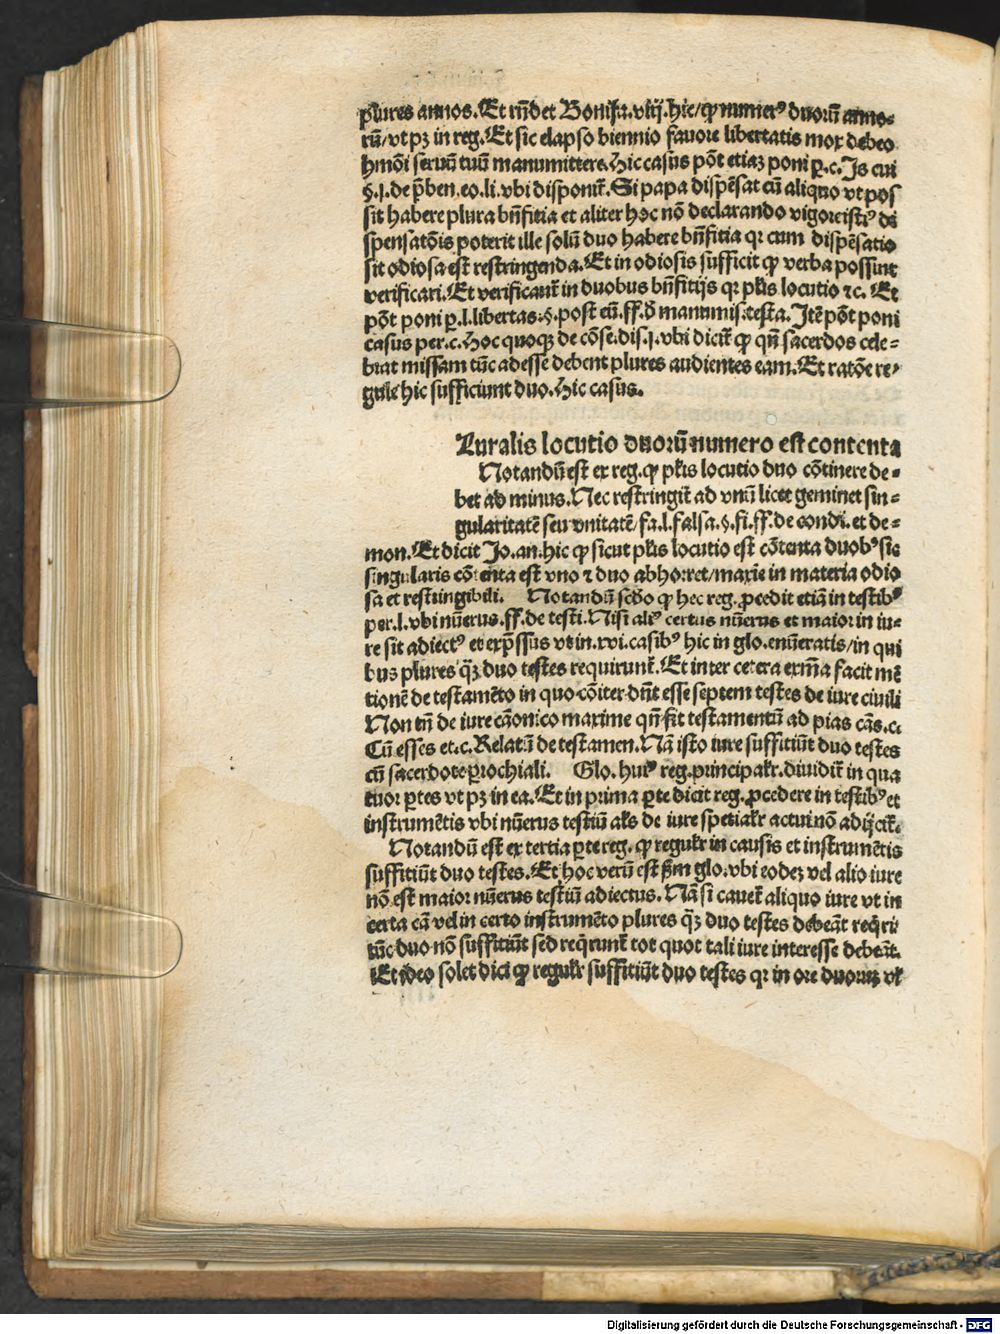 plures annos. Et rñdet Bonifa. viij. hic/ꝙ numerꝰ duorū anno⸗
rū/vt pꝫ in reg. Et sic elapso biennio fauore libertatis mox debeo
hmōi seruū tuū manumittere. Hic casus pōt etiaꝫ poni ꝑ.c. Is cui
§.j. de p̄ben. eo. li. vbi disponit̄. Si papa dispēsat cū aliquo vt pos
sit habere plura bn̄fitia et aliter hoc nō declarando vigore istiꝰ di
spensatōis poterit ille solū duo habere bn̄fitia qꝛ cum dispēsatio
sit odiosa est restringenda. Et in odiosis sufficit ꝙ verba possint
verificari. Et verificant̄ in duobus bn̄fitijs qꝛ pl̄is locutio ⁊c. Et
pōt poni ꝑ.l. libertas. §. post eū. ff. d̄ manumis. testa. Itē pōt poni
casus per.c. Hoc quoqꝫ de cōse. dis. j. vbi dicit̄ ꝙ qn̄ sacerdos cele⸗
brat missam tūc adesse debent plures audientes eam. Et ratōe re⸗
gule hic sufficiunt duo. Hic casus.
Luralis locutio duorū numero est contenta
Notandū est ex reg. ꝙ pl̄is locutio duo cōtinere de⸗
bet ad minus. Nec restringit̄ ad vnū licet geminet sin⸗
gularitatē seu vnitatē/fa. l. falsa. §. fi. ff. de condi. et de⸗
mon. Et dicit Jo. an. hic ꝙ sicut pl̄is locutio est cōtenta duobꝰ sic
singularis cōtenta est vno ⁊ duo abhorret/maxīe in materia odio
sa et restringibili. Notandū scḏo ꝙ hec reg. ꝓcedit etiā in testibꝰ
per.l. vbi nūerus. ff. de testi. Nisi aliꝰ certus nūerus et maior in iu⸗
re sit adiectꝰ et exp̄ssus vt in. xvi. casibꝰ hic in glo. enūeratis/in qui
bus plures q̄ꝫ duo testes requirunt̄. Et inter cetera exm̄a facit mē
tionē de testamēto in quo cōiter dn̄t esse septem testes de iure ciuili
Non tn̄ de iure cānonico maxime qn̄ fit testamentū ad pias cās. c.
Cū esses et.c. Relatū de testamen. Nā isto iure suffitiūt duo testes
cū sacerdote ꝑrochiali. Glo. huiꝰ reg. principalr̄. diuidit̄ in qua
tuor ꝑtes vt pꝫ in ea. Et in prima ꝑte dicit reg. ꝓcedere in testibꝰ et
instrumētis vbi nūerus testiū al̄s de iure spetialr̄ actui nō adijcit̄.
Notandū est ex tertia ꝑte reg. ꝙ regulr̄ in causis et instrumētis
suffitiūt duo testes. Et hoc verū est ẜm glo. vbi eodeꝫ vel alio iure
nō est maior nūerus testiū adiectus. Nā si cauet̄ aliquo iure vt in
certa cā vel in certo instrumēto plures q̄ꝫ duo testes debeāt req̄ri
tūc duo nō suffitiūt sed req̄runt̄ tot quot tali iure interesse debeāt.
Et ideo solet dici ꝙ regulr̄ suffitiūt duo testes qꝛ in ore duorꝫ vl̄
Digitalisierung gefördert durch die Deutsche Forschungsgemeinschaft - DFG